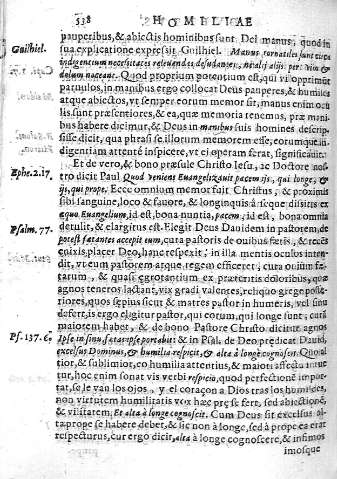 538 HOMILIAE
pauperibus, & abiectis hominibus sunt. Del manus, quod in
Guilhiel. sua explicatione expressit Guilhiel. Manus tornatiles sunt
indigentium necessitates releuendas desudantes, ne alij per vim &
dolum noceant. Quod proprium potentium est, qui vt opprimūt
paruulos, in manibus ergo collocat Deus pauperes, & humiles
atque abiectos, vt semper eorum memor sit, manus enim ocu
lis sunt præsentiores, & ea, quæ memoria tenemus, præ mani-
bus habere dicimur, & Deus in manibus suis homines descrip-
sisse dicit, qua phrasi se illorum memorem esse, eorumque in-
digentiam attentè inspicere, vt ei operam ferat, significauit.
Et de vero, & bono præsule Christo Iesu, ac Doctore nos-
Ephe. 2. 17. tro dicit Paul Quod veniens Euangelizauit pacem ijs, qui longe,
ijs, qui prope. Ecce omnium memor fuit Christus, & proximis
sibi sanguine, loco & fauore, & longinquis à seque dissitis ex
equo Euangelium, id est, bona nuntia, pacem, id est, bona omnia
detulit, & elargitus est. Elegit Deus Dauidem in pastorem, de
Psalm. 77. post fœtantes accepit eum, cura pastoris de ouibus fœtis, & recēs
enixis, placet Deo, hanc respexit, in illa mentis oculos inten-
dit, vt eum pastorem atque regem efficeret, cura ouium fœ-
tarum, & quasi ægrotantium ex præteritis doloribus, quæ
agnos teneros lactant, vix gradi valentes, reliquo grege poste-
riores, quos sępius sicut & matres pastor in humeris, vel sinu
defert, is ergo eligitur pastor, qui eorum, qui longe sunt, curā
maiorem habet, & de bono Pastore Christo dicitur agnos
Ps. 137. 6. Ipse in sinu, fœtas ipse portabit & in Psal. de Deo prædicat Dauid,
excelsus Dominus, & humilia respicit, & alta à longè cognoscit. Quo al
tior, & sublimior, eo humilia attentius, & maiori affectu intue
tur, hoc enim sonat vis verbi respicio, quod perfectionē impor-
tat, se le van los ojos, y el coraçon a Dios tras los humildes,
non virtutem humilitatis vox hæc præ se fert, sed abiectionē,
& vilitatem. Et alta à longe cognoscit. Cum Deus sit excelsus al-
ta prope se habere debet, & sic non à longe, sed à prope ea erat
respecturus, cur ergo dicit, alta à longe cognoscere, & infimos
imosque